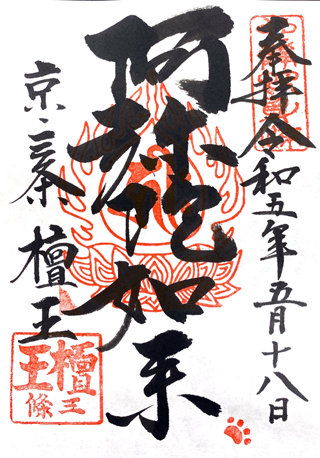 奉拝 令和五年五月十八日
阿弥陀如来
京・三条 檀王
檀王
三條